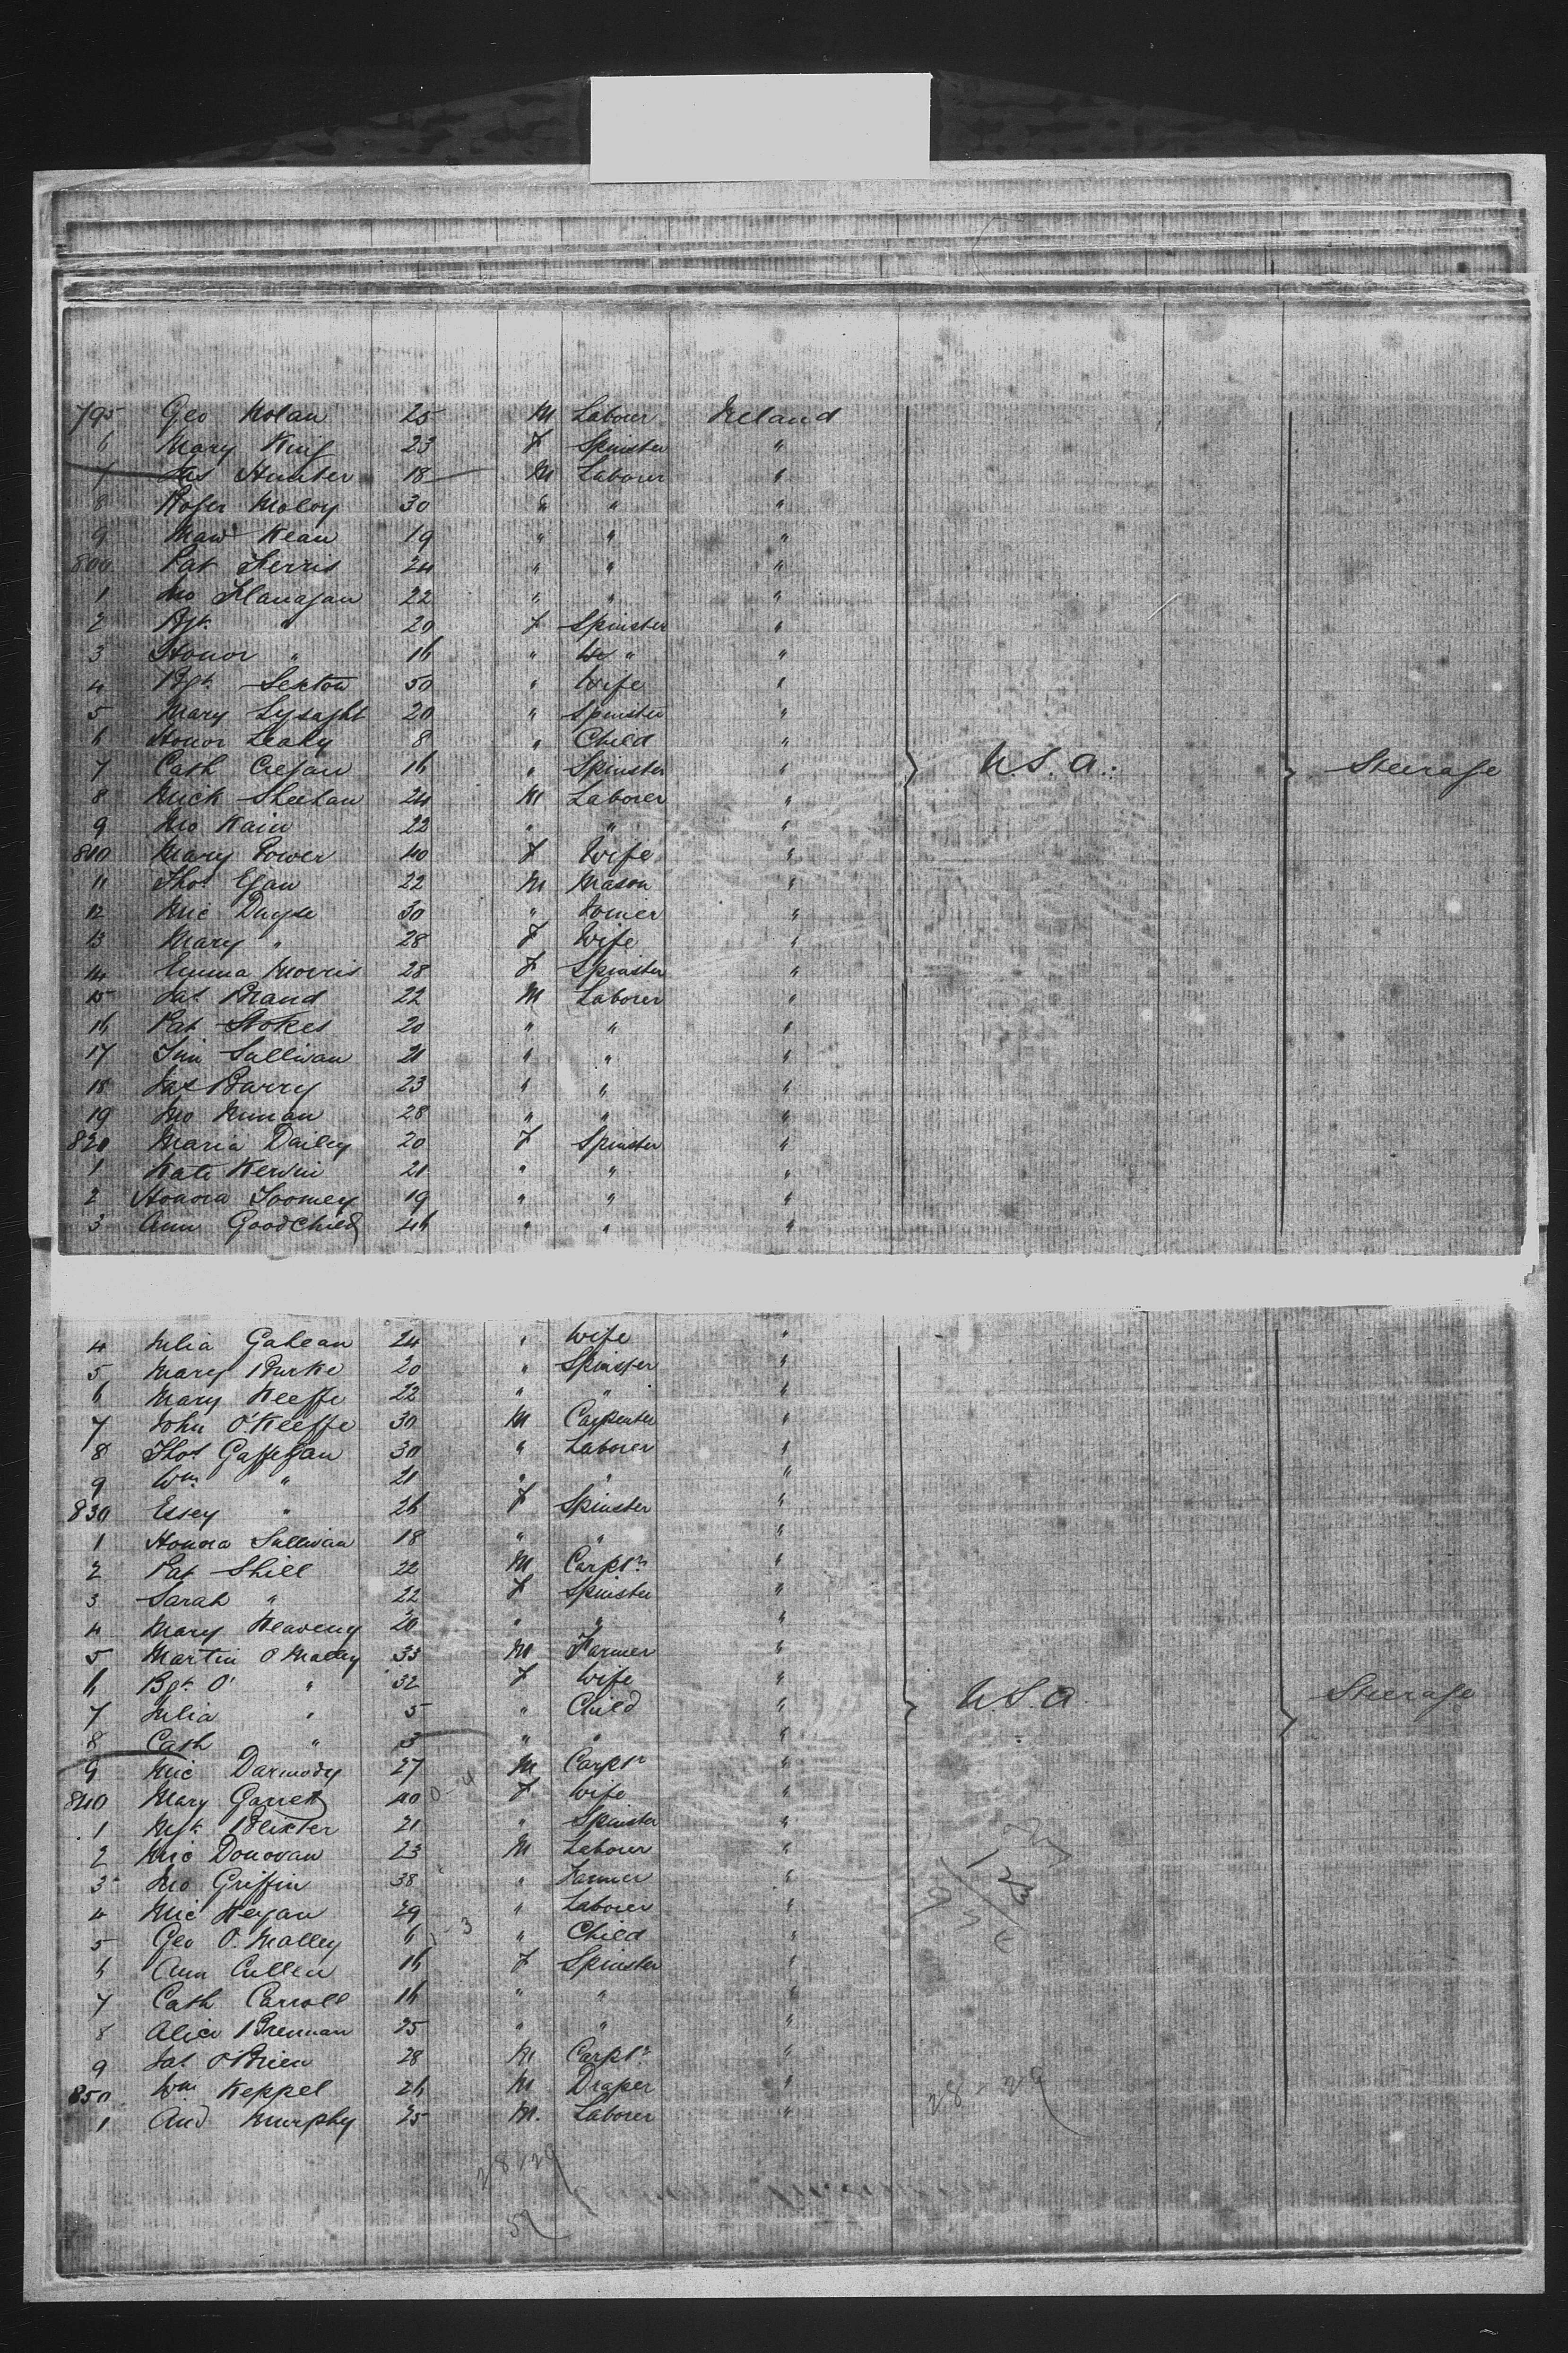 795 Geo Nolan 25 M Laborer Ireland
6 Mary King 23 F Spinster "
7 Jas Hunter 18 M Laborer "
8 Roger Moloy 30 " " "
9 Maw Kean 19 " " "
800 Pat Ferris 24 " " "
1 Jno Flanagan 22 " " "
2 Bgt. " 20 F Spinster "
3 Honor " 16 " " "
4 Bgt. Sexton 50 " Wife "
5 Mary Lysaght 20 " Spinster "
6 Honor Leahy 8 " Child "
7 Cath Cregan 16 " Spinster " U.S.A. Steerage
8 Mick Sheehan 24 M Laborer "
9 Jno Kain 22 " " "
810 Mary Power 40 F Wife "
11 Thos Egan 22 M Mason "
12 Mic Dwyse 30 " Joiner "
13 Mary " 28 F Wife "
14 Emma Morris 28 F Spinster "
15 Jas Brand 22 M Laborer "
16 Pat Stokes 20 " " "
17 Tim Sullivan 21 " " "
18 Jas Barry 23 " " "
19 Jno 28 " " "
820 Maria Dailey 20 F Spinster "
1 Kate Kerwin 21 " " "
2 Honora Toomey 19 " " "
3 Ann Goodchild 46 " " "
4 Julia Gahean 24 " Wife "
5 Mary Burke 20 " Spinster "
6 Mary Keeffe 22 " " "
7 John O'Keeffe 30 M Carpenter "
8 Thos Gaffigan 30 " Laborer "
9 Wm " 21 " " "
830 Essey " 26 F Spinster "
1 Honora Sullivan 18 " " "
2 Pat Shiel 22 M Carptr "
3 Sarah " 22 F Spinster "
4 Mary Heaveny 20 " " "
5 Martin O Malley 33 M Farmer "
6 Bgt. O' " 32 F Wife "
7 Julia " 5 " Child " U.S.A. Steerage
8 Cath " 3 " " "
9 Mic Darmody 27 M Carptr "
840 Mary Garrett 40 F Wife "
1 Mgt. Baxter 21 " Spinster "
2 Mic Donovan 23 M Laborer "
3 Jno Griffin 38 " Farmer "
4 Mic Regan 29 " Laborer "
5 Geo O. Malley 6 " Child "
6 Ann Cullen 16 F Spinster "
7 Cath Carroll 16 " " "
8 Alice Brennan 25 " " "
9 Jas O'Brien 28 M Carptr "
850 Wm Keppel 26 M Draper "
1 And Murphy 25 M. Laborer "